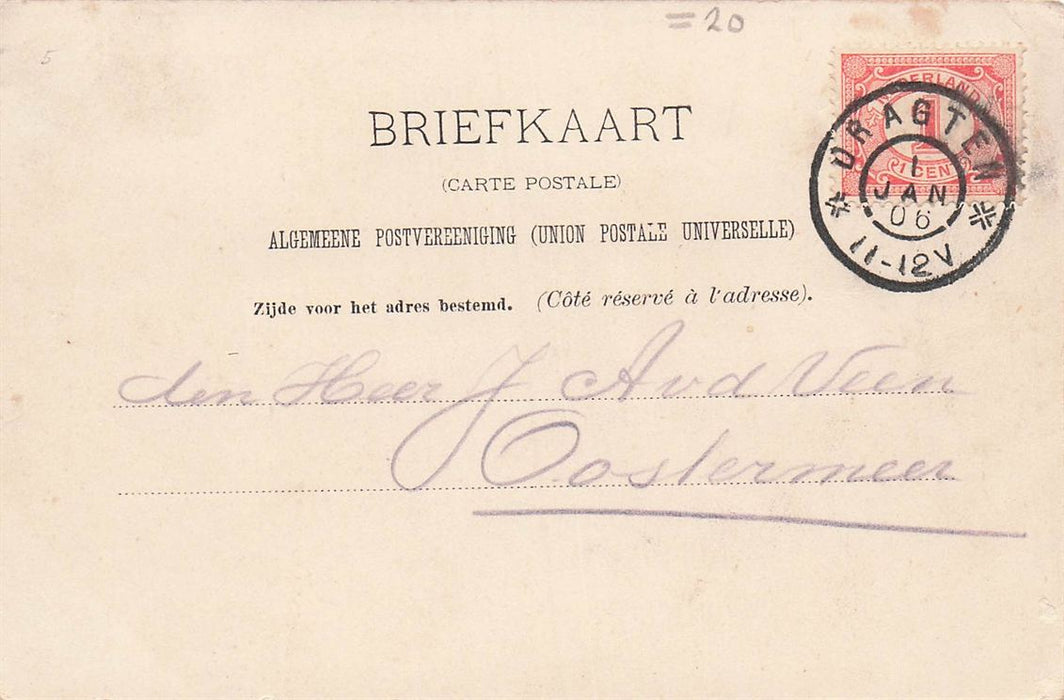 = 20
5
NEDERLAND
1
1 CENT
DRAGTEN
1
JAN
06
11-12V
BRIEFKAART
(CARTE POSTALE)
ALGEMEENE POSTVEREENIGING (UNION POSTALE UNIVERSELLE)
Zijde voor het adres bestemd. (Côté réservé à l'adresse).
den Heer J Avd Veen
Oostermeer